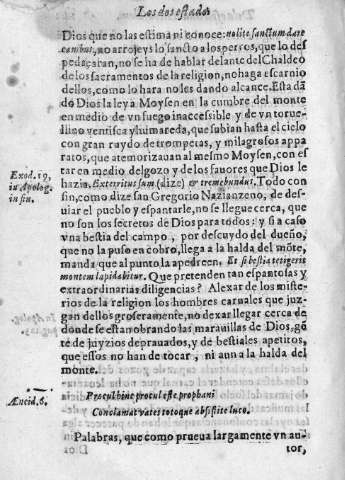 Los dos estados
Dios que no las estima ni conoce: nolite sanctum dare
canibus, no arrojeys lo sancto a los perros, que lo des
pedaçaran, no se ha de hablar delante del Chaldeo
de los sacramentos de la religion, no haga escarnio
dellos, como lo hara no les dando alcance. Esta dã
dó Dios la ley a Moysen en la cumbre del monte
en medio de vn fuego inaccessible y de vn torue-
llino ventisca y humareda, que subian hasta el cielo
con gran ruydo de trompetas, y milagrosos appa
ratos, que atemorizauan al mesmo Moysen, con es
tar en medio del gozo y de los fauores que Dios le
Exod. 19,
in Apolog.
in fin.
hazia. Exterritus sum (dize) & tremebundus. Todo con
fin, como dize san Gregorio Nazianzeno, de des-
uiar el pueblo y espantarle, no se llegue cerca, que
no son los secretos de Dios para todos: y si a caso
vna bestia del campo, por descuydo del dueño,
que no la puso en cobro, llega a la halda del mõte,
manda que al punto la apedreen. Et si bestia tetigerit
montem lapidabitur. Que pretenden tan espantosas y
extraordinarias diligencias? Alexar de los miste-
rios de la religion los hombres carnales que juz-
gan dellos groseramente, no dexar llegar cerca de
donde se estan obrando las marauillas de Dios, gẽ
te de juyzios deprauados, y de bestiales apetitos,
que essos no han de tocar, ni aun a la halda del
monte.
Æneid. 6.
Procul hinc procul este prophani
Conclamat vates totoque absistite luco.
Palabras, que como prueua largamente vn au-
tor,